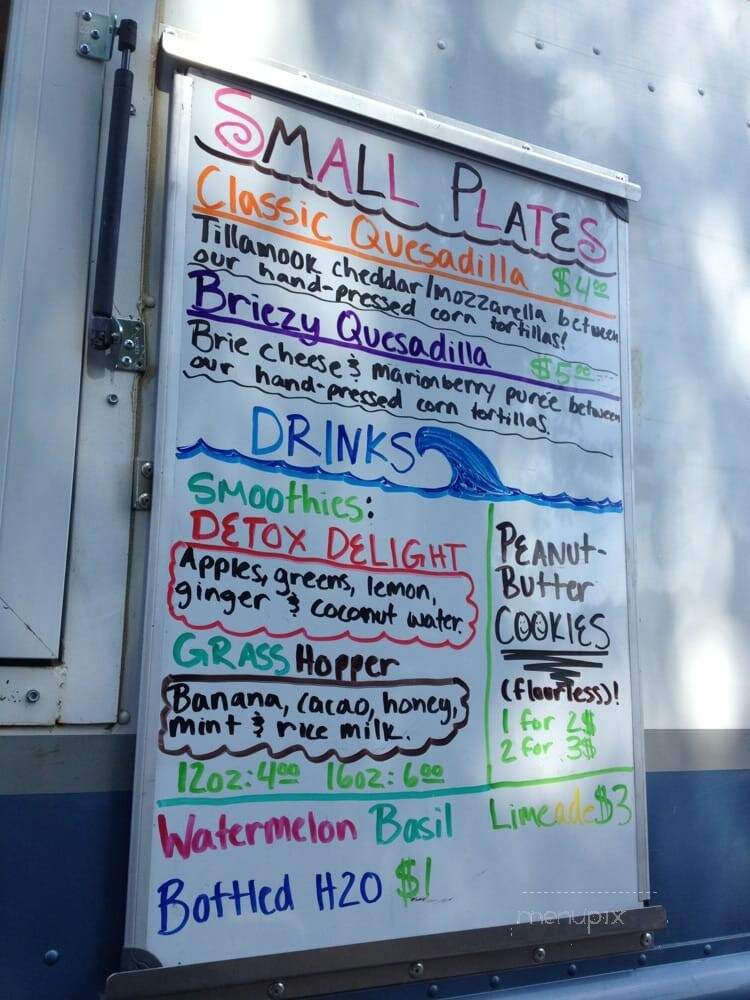 SMALL PLATES
Classic Quesadilla $4.00
Tillamook cheddar/mozzarella between
our hand-pressed corn tortillas!
Briezy Quesadilla $5.00
Brie cheese & marionberry purée between
our hand-pressed corn tortillas.
DRINKS
Smoothies:
DETOX DELIGHT
Apples, greens, lemon,
ginger & coconut water.
GRASSHopper
Banana, cacao, honey,
mint & rice milk.
12oz: 4.00 16oz: 6.00
PEANUT-
Butter
COOKIES
(flourless)!
1 for 2$
2 for 3$
Watermelon Basil Limeade $3
Bottled H2O $1
menupix